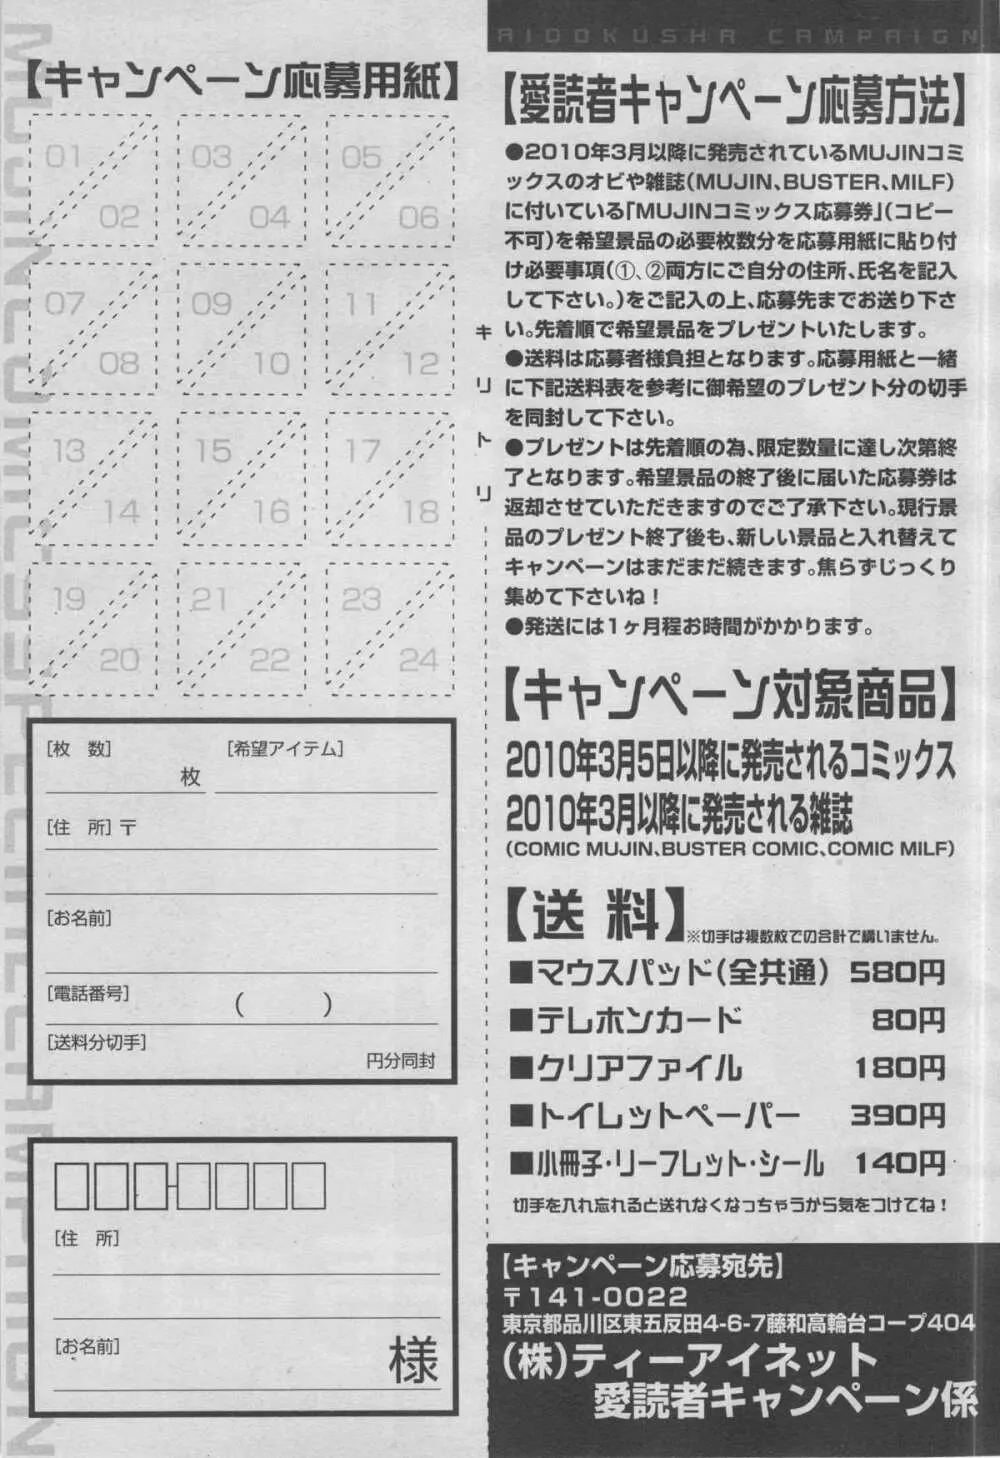 AIDOKUSHA CAMPAIGN
【愛読者キャンペーン応募方法】
●2010年3月以降に発売されているMUJINコミ
ックスのオビや雑誌(MUJIN、BUSTER、MILF)
に付いている「MUJINコミックス応募券」(コピー
不可)を希望景品の必要枚数分を応募用紙に貼り付
け必要事項(①、②両方にご自分の住所、氏名を記入
して下さい。)をご記入の上、応募先までお送り下さ
い。先着順で希望景品をプレゼントいたします。
●送料は応募者様負担となります。応募用紙と一緒
に下記送料表を参考に御希望のプレゼント分の切手
を同封して下さい。
●プレゼントは先着順の為、限定数量に達し次第終
了となります。希望景品の終了後に届いた応募券は
返却させていただきますのでご了承下さい。現行景
品のプレゼント終了後も、新しい景品と入れ替えて
キャンペーンはまだまだ続きます。焦らずじっくり
集めて下さいね!
●発送には1ヶ月程お時間がかかります。
【キャンペーン対象商品】
2010年3月5日以降に発売されるコミックス
2010年3月以降に発売される雑誌
(COMIC MUJIN、BUSTER COMIC、COMIC MILF)
【送 料】※切手は複数枚での合計で構いません。
■マウスパッド(全共通) 580円
■テレホンカード 80円
■クリアファイル 180円
■トイレットペーパー 390円
■小冊子・リーフレット・シール 140円
切手を入れ忘れると送れなくなっちゃうから気をつけてね!
【キャンペーン応募宛先】
〒141-0022
東京都品川区東五反田4-6-7藤和高輪台コープ404
(株)ティーアイネット
愛読者キャンペーン係
キリトリ
【キャンペーン応募用紙】
01 02 03 04 05 06
07 08 09 10 11 12
13 14 15 16 17 18
19 20 21 22 23 24
[枚 数] 枚 [希望アイテム]
[住 所]〒
[お名前]
[電話番号] ( )
[送料分切手] 円分同封
[住 所]
[お名前] 様